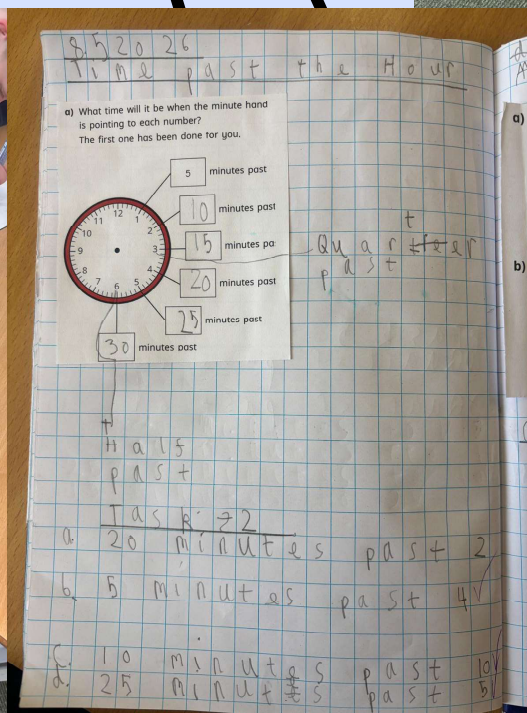 8 5 20 26
Time past the Hour
a) What time will it be when the minute hand
is pointing to each number?
The first one has been done for you.
5 minutes past
10 minutes past
15 minutes pa
20 minutes past
25 minutes past
30 minutes past
12
1
2
3
4
5
6
7
8
9
10
11
Quarter
past
Half
past
Task 2
a. 20 minutes past 2
b. 5 minutes past 4
c. 10 minutes past 10
d. 25 minutes past 5
a)
b)